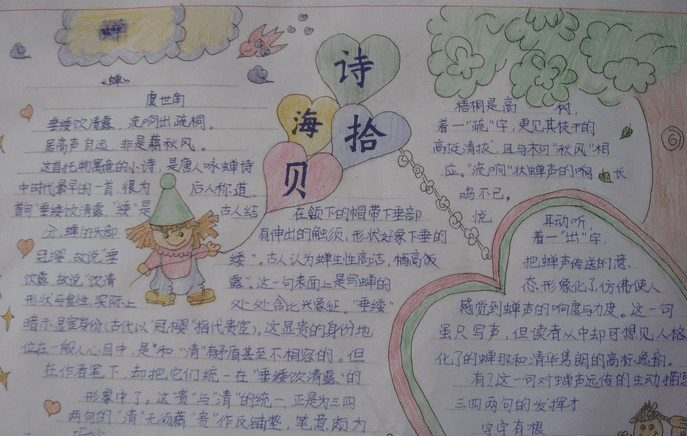 诗
海
拾
贝
《蝉》
虞世南
垂緌饮清露,流响出疏桐。
居高声自远,非是藉秋风。
这首托物寓意的小诗,是唐人咏蝉诗
中时代最早的一首,很为 后人称道
首句“垂緌饮清露,“緌”是 古人结
在领下的帽带下垂部
分,蝉的头部 有伸出的触须,形状好象下垂的
且深,故说“垂 緌”。古人认为蝉生性高洁,栖高饮
饮露,故说“饮清 露”。这一句表面上是写蝉的
形状与食性,实际上 处处含比兴象征。“垂緌”
暗示显宦身份(古代以“冠缨”指代贵宦)。这显贵的身份地
位在一般人心目中,是“和“清”有矛盾甚至不相容的。但
在作者笔下,却把它们统一在“垂緌饮清露”的
形象中了。这“贵”与“清”的统一,正是为三四
两句的“清”无须藉“贵”作反铺垫,笔意颇为
梧桐是高 树,
着一“疏”字,更见其枝干的
高挺清拔,且与末句“秋风”相
应。“流响”状蝉声的 长
鸣不已。
悦 耳动听,
着一“出”字,
把蝉声传送的意
态形象化了,仿佛使人
感觉到蝉声的响度与力度。这一句
虽只写声,但读者从中却可想见人格
化了的蝉那和清华隽朗的高标逸韵。
有了这一句对蝉声远传的生动描
三四两句的发挥才
字字有根